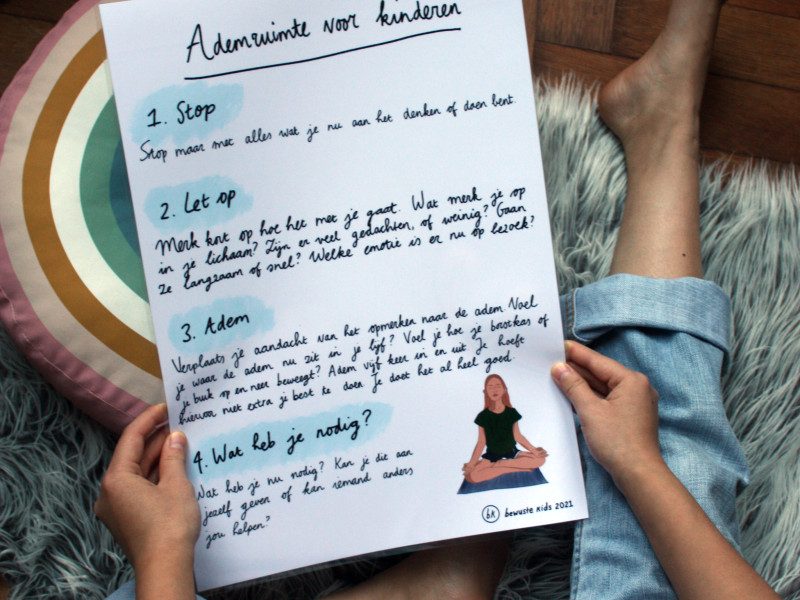 Ademruimte voor kinderen
1. Stop
Stop maar met alles wat je nu aan het denken of doen bent.
2. Let op
Merk kort op hoe het met je gaat. Wat merk je op
in je lichaam? Zijn er veel gedachten, of weinig? Gaan
ze langzaam of snel? Welke emotie is er nu op bezoek?
3. Adem
Verplaats je aandacht van het opmerken naar de adem. Voel
je waar de adem nu zit in je lijf? Voel je hoe je borstkas of
je buik op en neer beweegt? Adem vijf keer in en uit. Je hoeft
hiervoor niet extra je best te doen. Je doet het al heel goed.
4. Wat heb je nodig?
Wat heb je nu nodig? Kan je dit aan
jezelf geven of kan iemand anders
jou helpen?
bk bewuste kids 2021